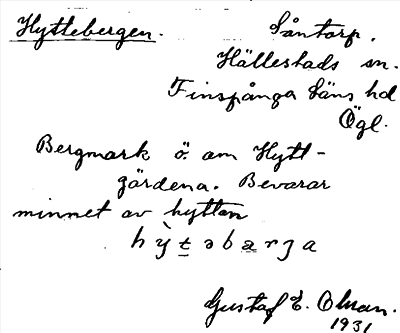 Hyttebergen. Såntorp.
Hällestads sn.
Finspånga läns hd
Ögl.
Bergmark ö. om Hytt-
gärdena. Bevarar
minnet av hyttan
Gustaf E. 
1931